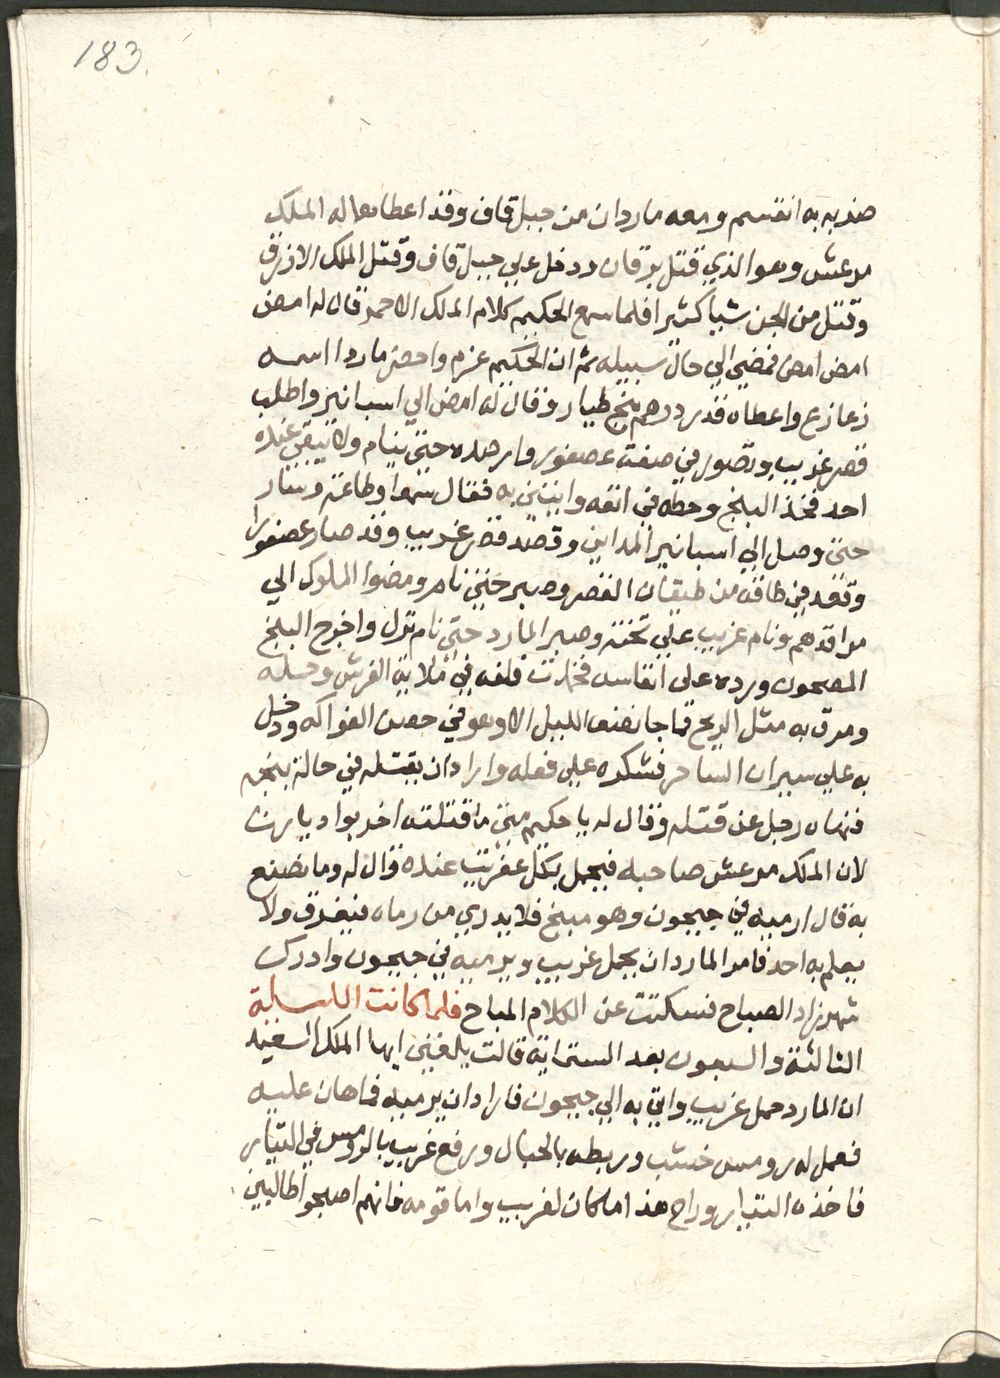 183
ضربه به انقسم ومعه ماردان من جبل قاف وقد اعطاهما له الملك
مرعش وهو الذي قتل برقان ودخل علي جبل قاف وقتل الملك الازرق
وقتل من الجن شيا كثيرا فلما سمع الحكيم كلام الملك الاحمر قال له امض
امض امض فمضي الي حال سبيله ثم ان الحكيم عزم واحضر ماردا اسمه
زعازع واعطاه قدر درهم بنج طيار وقال له امض الي اسبانير واطلب
قصر غريب وتصور في صفت عصفور وارصده حتي ينام ولا يبقي عنده
احد فخذ البنج وحطه في انفه وايتني به فقال سمعا وطاعة وسار
حتي وصل الي اسبانير المداين وقصد قصر غريب وقد صار عصفورا
وقعد في طاقه من طيقان القصر وصبر حتي نام ومضوا الملوك الي
مراقدهم ونام غريب علي تخته وصبر المارد حتي نام نزل واخرج البنج
المصحون ورده علي انفاسه فخمدت فلفه في ملاية الفرش وحمله
ومرق به مثل الريح فما جا نصف الليل الا وهو في حصن الفواكه ودخل
به علي سيران الساحر فشكره علي فعله واراد ان يقتله في حالة بنجه
فنهاه رجل عن قتله وقال له يا حكيم متي ما قتلته اخربوا ديارنا
لان الملك مرعش صاحبه فيحمل بكل عفريت عنده قال له وما نصنع
به قال ارميه في جيحون وهو مبنج فلا يدري من رماه فيغرق ولا
يعلم به احد فامر الماردان يحمل غريب ويرميه في جيحون وادرك
شهرزاد الصباح فسكتت عن الكلام المباح فلما كانت الليلة
الثالثة والسبعون بعد الستماية قالت بلغني ايها الملك السعيد
ان المارد حمل غريب واتي به الي جيحون فاراد ان يرميه فما هان عليه
فعمل له رومس خشب وربطه بالحبال ورفع غريب بالرومس في التيار
فاخذه التيار وراح هذا ما كان لغريب واما قومه فانهم اصبحوا طالبين